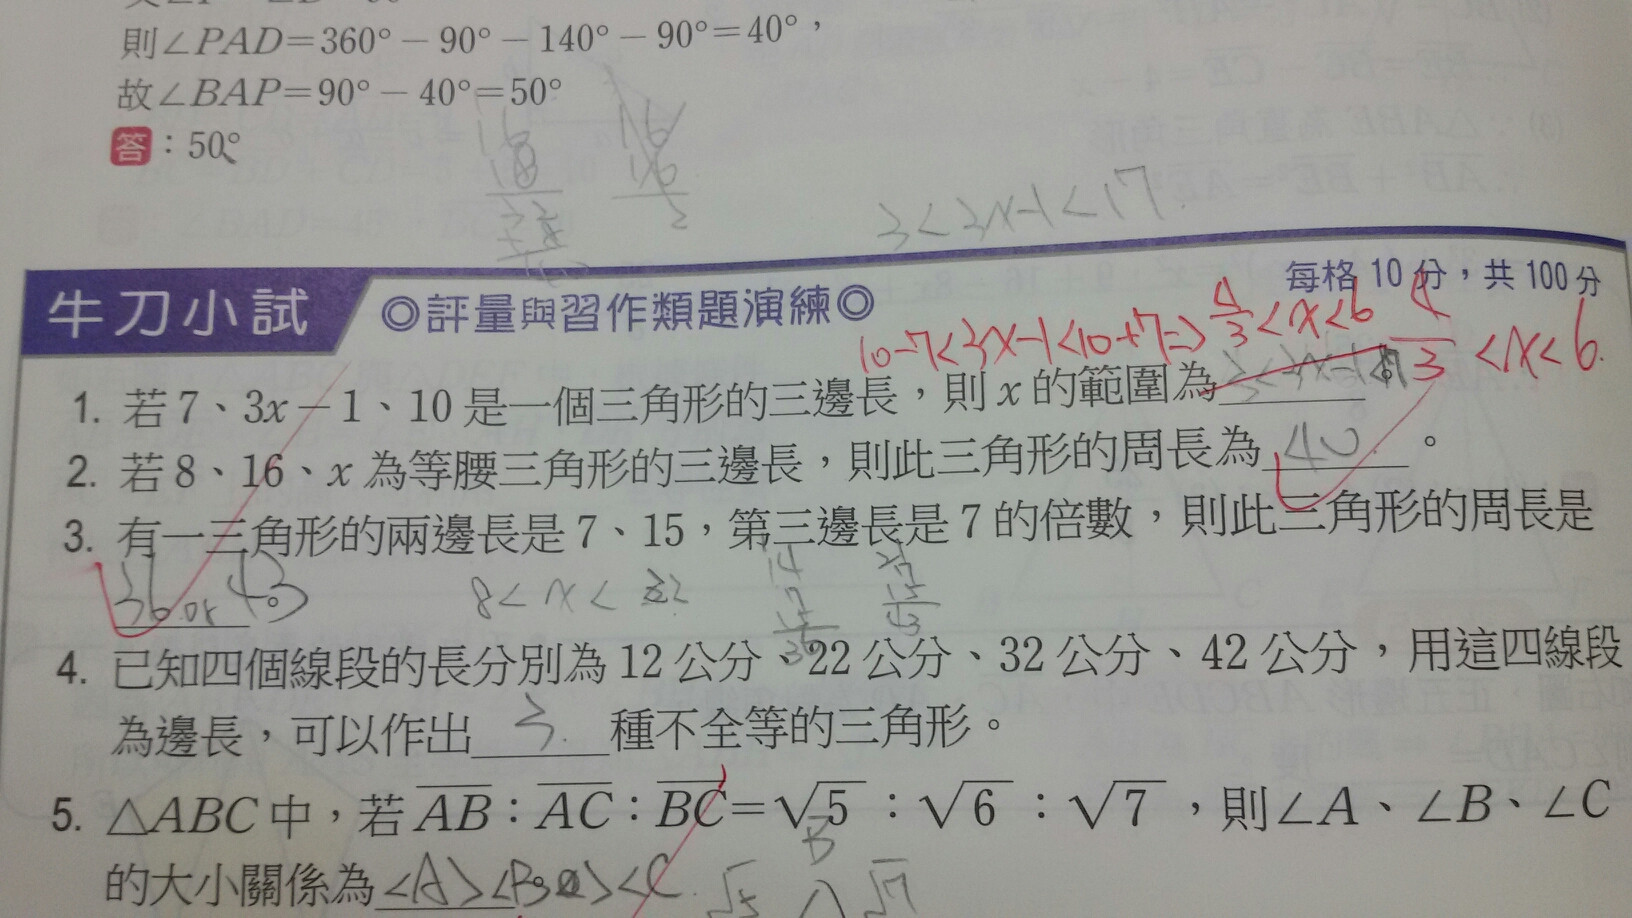 則∠PAD=360°-90°-140°-90°=40°，
故∠BAP=90°-40°=50°
答：50°
16 16
18 16
2
3<3x-1<17
每格 10 分，共 100 分
牛刀小試 ◎評量與習作類題演練◎
10-7<3x-1<10+7=> 4/3<x<6 4/3<x<6.
1. 若 7、3x-1、10 是一個三角形的三邊長，則 x 的範圍為 3<3x-1<17。
2. 若 8、16、x 為等腰三角形的三邊長，則此三角形的周長為 40 。
3. 有一三角形的兩邊長是 7、15，第三邊長是 7 的倍數，則此三角形的周長是
36 or 43。 8<x<22
14
7
15 15
36 43
4. 已知四個線段的長分別為 12 公分、22 公分、32 公分、42 公分，用這四線段
為邊長，可以作出 3 種不全等的三角形。
5. △ABC 中，若 AB：AC：BC=√5：√6：√7，則∠A、∠B、∠C
B
的大小關係為 <A><B><C。
√5 √7